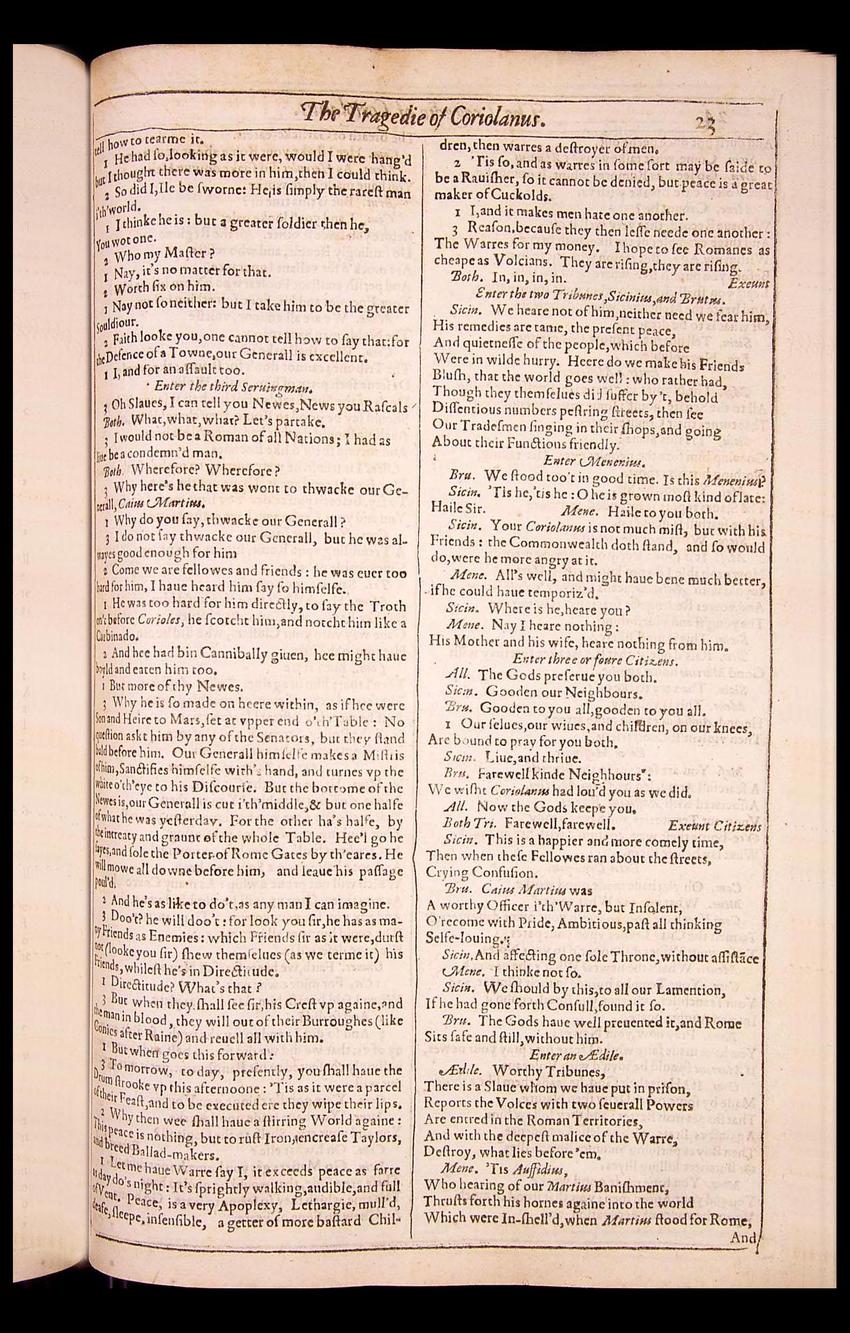 The Tragedie of Coriolanus.
23
tell how to tearme it.
1 He had so, looking as it were, would I were hang'd
but I thought there was more in him, then I could think.
2 So did I, Ile be sworne: He is simply the rarest man
i'th'world.
1 I thinke he is: but a greater soldier then he,
You wot one.
2 Who my Master?
1 Nay, it's no matter for that.
2 Worth six on him.
1 Nay not so neither: but I take him to be the greater
Souldiour.
2 Faith looke you, one cannot tell how to say that: for
the Defence of a Towne, our Generall is excellent.
1 I, and for an assault too.
Enter the third Seruingman.
3 Oh Slaues, I can tell you Newes, News you Rascals
Both. What, what, what? Let's partake.
3 I would not be a Roman of all Nations; I had as
liue be a condemn'd man.
Both. Wherefore? Wherefore?
3 Why here's he that was wont to thwacke our Ge-
nerall, Caius Martius.
1 Why do you say, thwacke our Generall?
3 I do not say thwacke our Generall, but he was al-
wayes good enough for him
2 Come we are fellowes and friends: he was euer too
hard for him, I haue heard him say so himselfe.
1 He was too hard for him directly, to say the Troth
on't before Corioles, he scotcht him, and notcht him like a
Carbinado.
2 And hee had bin Cannibally giuen, hee might haue
boyld and eaten him too.
1 But more of thy Newes.
3 Why he is so made on heere within, as if hee were
Son and Heire to Mars, set at vpper end o'th'Table: No
question askt him by any of the Senators, but they stand
bald before him. Our Generall himselfe makes a Mistris
of him, Sanctifies himselfe with's hand, and turnes vp the
white o'th'eye to his Discourse. But the bottome of the
Newes is, our Generall is cut i'th'middle, & but one halfe
of what he was yesterday. For the other ha's halfe, by
the intreaty and graunt of the whole Table. Hee'l go he
sayes, and sole the Porter of Rome Gates by th'eares. He
will mowe all downe before him, and leaue his passage
poul'd.
2 And he's as like to do't, as any man I can imagine.
3 Doo't? he will doo't: for look you sir, he has as ma-
ny Friends as Enemies: which Friends sir as it were, durst
not (looke you sir) shew themselues (as we terme it) his
Friends, whilest he's in Directitude.
1 Directitude? What's that?
3 But when they shall see sir, his Crest vp againe, and
the man in blood, they will out of their Burroughes (like
Conies after Raine) and reuell all with him.
1 But when goes this forward:
3 To morrow, to day, presently, you shall haue the
Drum strooke vp this afternoone: 'Tis as it were a parcel
of their Feast, and to be executed ere they wipe their lips.
2 Why then wee shall haue a stirring World againe:
This peace is nothing, but to rust Iron, encrease Taylors,
and breed Ballad-makers.
1 Let me haue Warre say I, it exceeds peace as farre
as day do's night: It's sprightly walking, audible, and full
of Vent. Peace, is a very Apoplexy, Lethargie, mull'd,
deafe, sleepe, insensible, a getter of more bastard Chil-
dren, then warres a destroyer of men.
2 'Tis so, and as warres in some sort may be saide to
be a Rauisher, so it cannot be denied, but peace is a great
maker of Cuckolds.
1 I, and it makes men hate one another.
3 Reason, because they then lesse neede one another:
The Warres for my money. I hope to see Romanes as
cheape as Volcians. They are rising, they are rising.
Both. In, in, in, in. Exeunt
Enter the two Tribunes, Sicinius, and Brutus.
Sicin. We heare not of him, neither need we fear him,
His remedies are tame, the present peace,
And quietnesse of the people, which before
Were in wilde hurry. Heere do we make his Friends
Blush, that the world goes well: who rather had,
Though they themselues did suffer by't, behold
Dissentious numbers pestring streets, then see
Our Tradesmen singing in their shops, and going
About their Functions friendly.
Enter Menenius.
Bru. We stood too't in good time. Is this Menenius?
Sicin. 'Tis he, 'tis he: O he is grown most kind of late:
Haile Sir. Mene. Haile to you both.
Sicin. Your Coriolanus is not much mist, but with his
Friends: the Commonwealth doth stand, and so would
do, were he more angry at it.
Mene. All's well, and might haue bene much better,
if he could haue temporiz'd.
Sicin. Where is he, heare you?
Mene. Nay I heare nothing:
His Mother and his wife, heare nothing from him.
Enter three or foure Citizens.
All. The Gods preserue you both.
Sicin. Gooden our Neighbours.
Bru. Gooden to you all, gooden to you all.
1 Our selues, our wiues, and children, on our knees,
Are bound to pray for you both.
Sicin. Liue, and thriue.
Bru. Farewell kinde Neighbours:
We wisht Coriolanus had lou'd you as we did.
All. Now the Gods keepe you.
Both Tri. Farewell, farewell. Exeunt Citizens
Sicin. This is a happier and more comely time,
Then when these Fellowes ran about the streets,
Crying Confusion.
Bru. Caius Martius was
A worthy Officer i'th'Warre, but Insolent,
O'recome with Pride, Ambitious, past all thinking
Selfe-louing.
Sicin. And affecting one sole Throne, without assistãce
Mene. I thinke not so.
Sicin. We should by this, to all our Lamention,
If he had gone forth Consull, found it so.
Bru. The Gods haue well preuented it, and Rome
Sits safe and still, without him.
Enter an Ædile.
Ædile. Worthy Tribunes,
There is a Slaue whom we haue put in prison,
Reports the Volces with two seuerall Powers
Are entred in the Roman Territories,
And with the deepest malice of the Warre,
Destroy, what lies before 'em.
Mene. 'Tis Auffidius,
Who hearing of our Martius Banishment,
Thrusts forth his hornes againe into the world
Which were In-shell'd, when Martius stood for Rome,
And